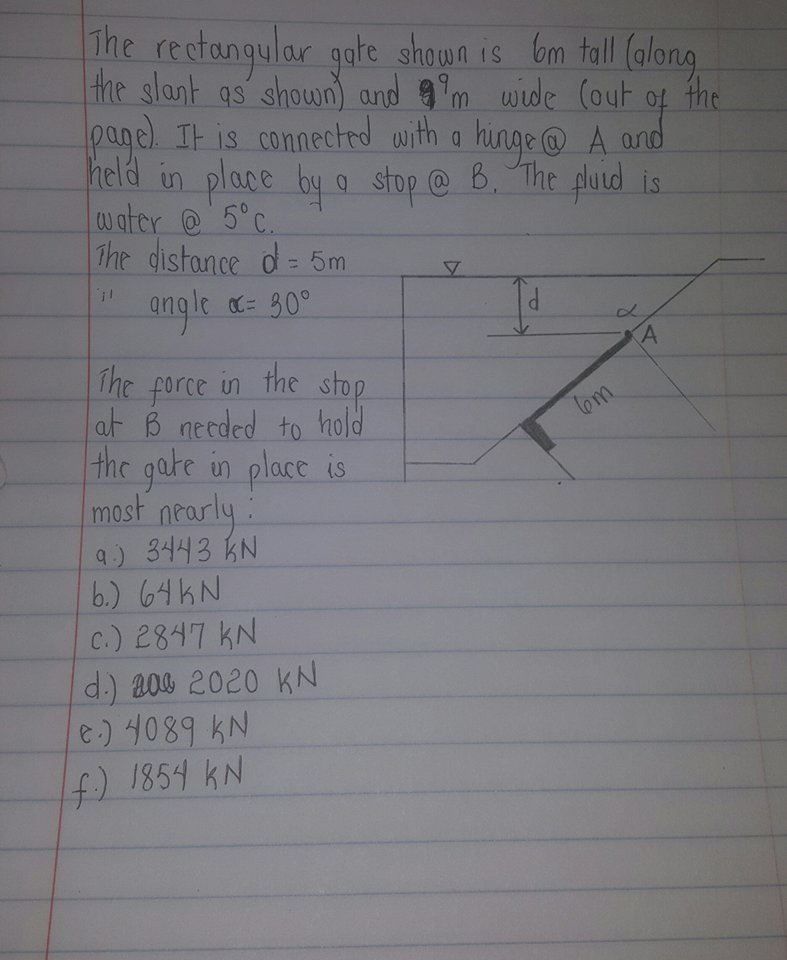 The rectangular gate shown is 6m tall (along
the slant as shown) and 9m wide (out of the
page). It is connected with a hinge @ A and
held in place by a stop @ B. The fluid is
water @ 5°C.
The distance d = 5m
" angle α = 30°
d
α
A
6m
The force in the stop
at B needed to hold
the gate in place is
most nearly:
a.) 3443 kN
b.) 64kN
c.) 2847 kN
d.) 2020 kN
e.) 4089 kN
f.) 1854 kN